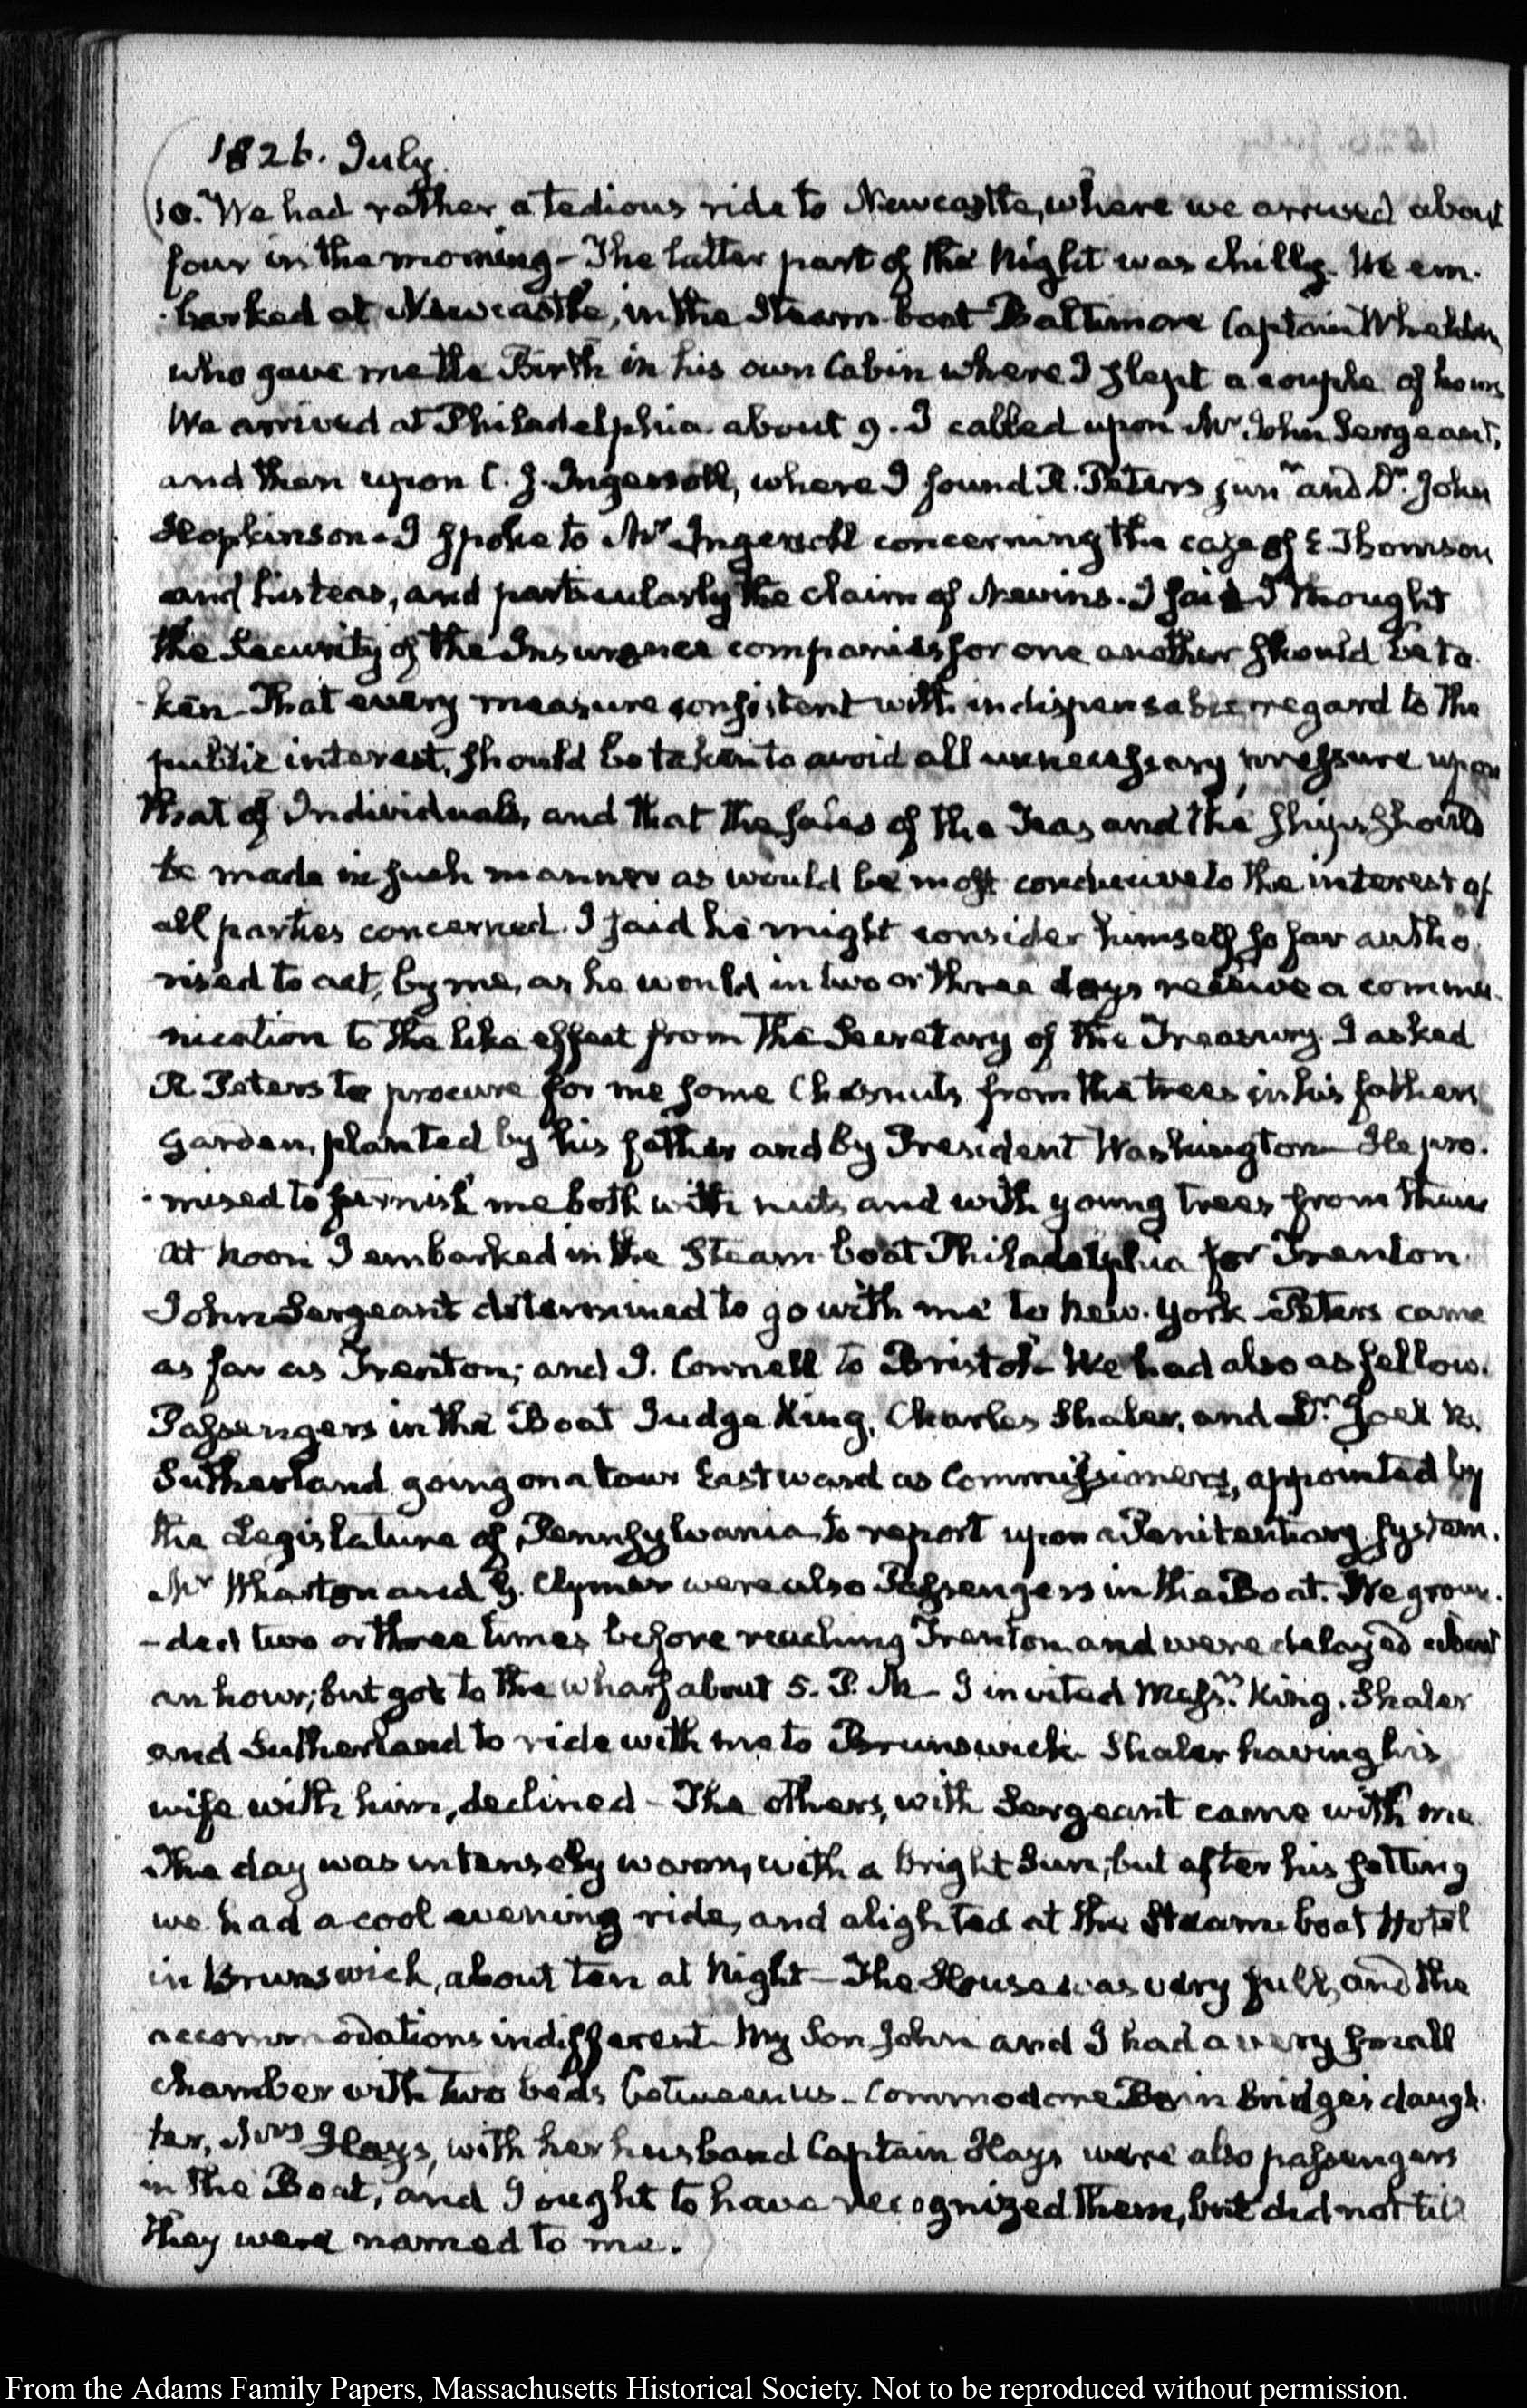 1826. July.
10. We had rather a tedious ride to Newcastle, where we arrived about
four in the morning - The latter part of the Night was chilly. We em-
-barked at Newcastle, in the Steam-boat Baltimore Captain Wheldin
who gave me the Birth in his own Cabin where I slept a couple of hours
We arrived at Philadelphia about 9. I called upon Mr. John Sergeant,
and then upon C. J. Ingersoll, where I found R. Peters junr. and Dr. John
Hopkinson. I spoke to Mr Ingersoll concerning the case of E. Thomson
and his teas, and particularly the claim of Nevins. I said I thought
the Security of the Insurance companies for one another should be ta-
-ken - That every measure consistent with indispensable regard to the
public interest, should be taken to avoid all unnecessary pressure upon
that of Individuals, and that the sales of the Teas and the ships should
be made in such manner as would be most conducive to the interest of
all parties concerned. I said he might consider himself so far autho-
rised to act, by me, as he would in two or three days receive a commu-
nication to the like effect from the Secretary of the Treasury. I asked
R Peters to procure for me some Chesnuts from the trees in his fathers
Garden, planted by his father and by President Washington - He pro-
-mised to furnish me both with nuts and with young trees from them
At Noon I embarked in the Steam-boat Philadelphia for Trenton
John Sergeant determined to go with me to New-York - Peters came
as far as Trenton; and J. Connell to Bristol - We had also as fellow-
Passengers in the Boat Judge King, Charles Shaler, and Dr. Joel B.
Sutherland going on a tour Eastward as Commissioners, appointed by
the Legislature of Pennsylvania to report upon a Penitentiary system.
Mr Wharton and G. Clymer were also Passengers in the Boat. We groun-
-ded two or three times before reaching Trenton and were delayed about
an hour; but got to the wharf about 5. P. M - I invited Messrs. King, Shaler
and Sutherland to ride with me to Brunswick. Shaler having his
wife with him, declined - The others, with Sergeant came with me.
The day was intensely warm, with a bright Sun; but after his setting
we had a cool evening ride, and alighted at the Steam boat Hotel
in Brunswick, about ten at Night - The House was very full, and the
accommodations indifferent. My Son John and I had a very small
chamber with two beds between us - Commodore Bainbridge's daugh-
ter, Mrs Hays, with her husband Captain Hays were also passengers
in the Boat, and I ought to have recognized them, but did not till
they were named to me.
From the Adams Family Papers, Massachusetts Historical Society. Not to be reproduced without permission.